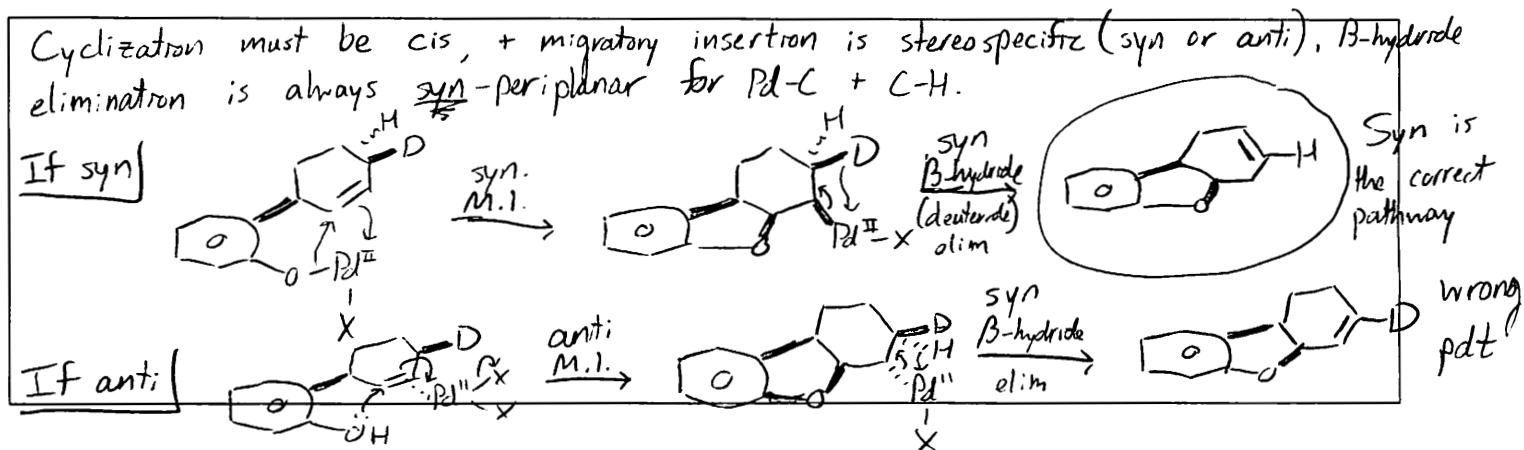 Cyclization must be cis, + migratory insertion is stereospecific (syn or anti). B-hydride
elimination is always syn-periplanar for Pd-C + C-H.
If syn
H
D
O-Pd^II
X
syn.
M.I.
H
D
O
Pd^II-X
syn
β-hydride
(deuteride)
elim
H
O
Syn is
the correct
pathway
If anti
D
Pd^II
X
X
OH
anti
M.I.
D
H
Pd^II
X
O
syn
β-hydride
elim
D
O
wrong
pdt